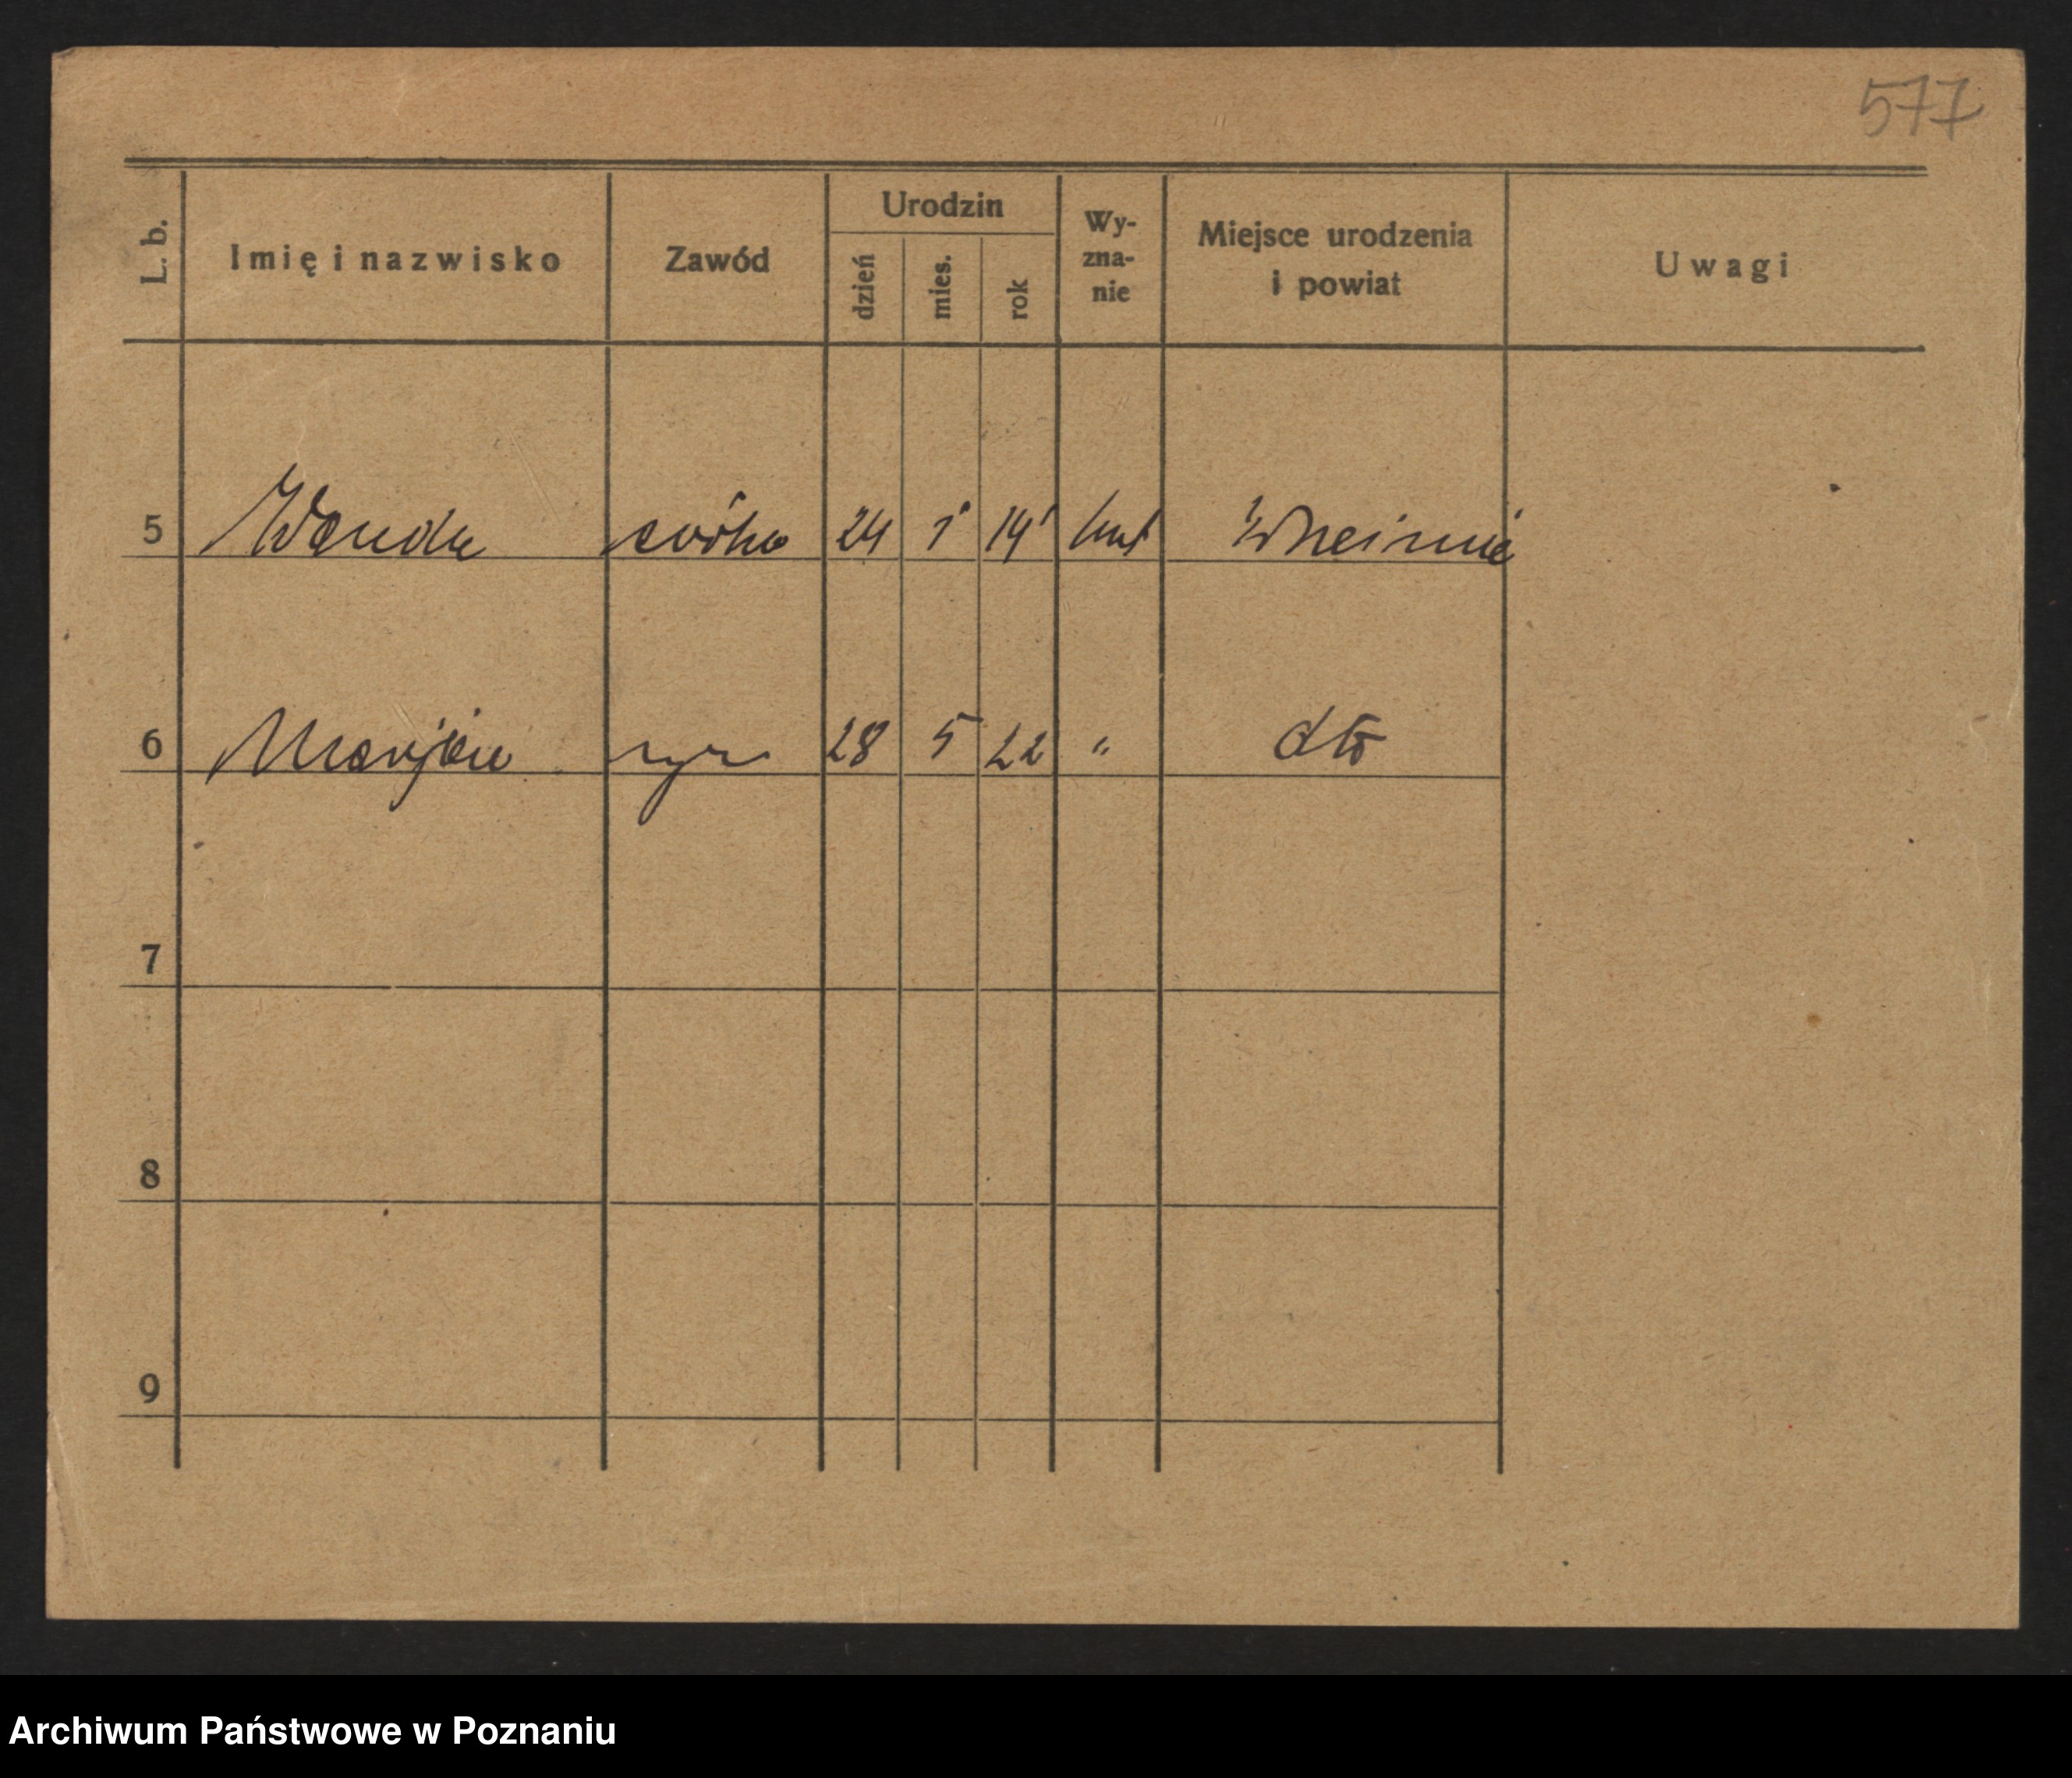 577
L. b. Imię i nazwisko Zawód Urodzin dzień mies. rok Wy-zna-nie Miejsce urodzenia i powiat Uwagi
5 Wanda córka 24 1 14 kat Wrześnie
6 Marjan syn 28 5 22 " dto
7
8
9
Archiwum Państwowe w Poznaniu